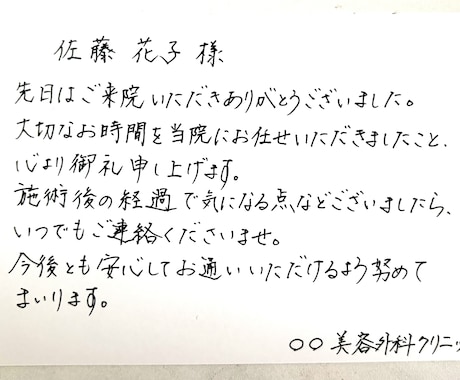 佐藤 花子 様
先日はご来院いただきありがとうございました。
大切なお時間を当院にお任せいただきましたこと、
心より御礼申し上げます。
施術後の経過で気になる点などございましたら、
いつでもご連絡くださいませ。
今後とも安心してお通いいただけるよう努めて
まいります。
○○美容外科クリニッ